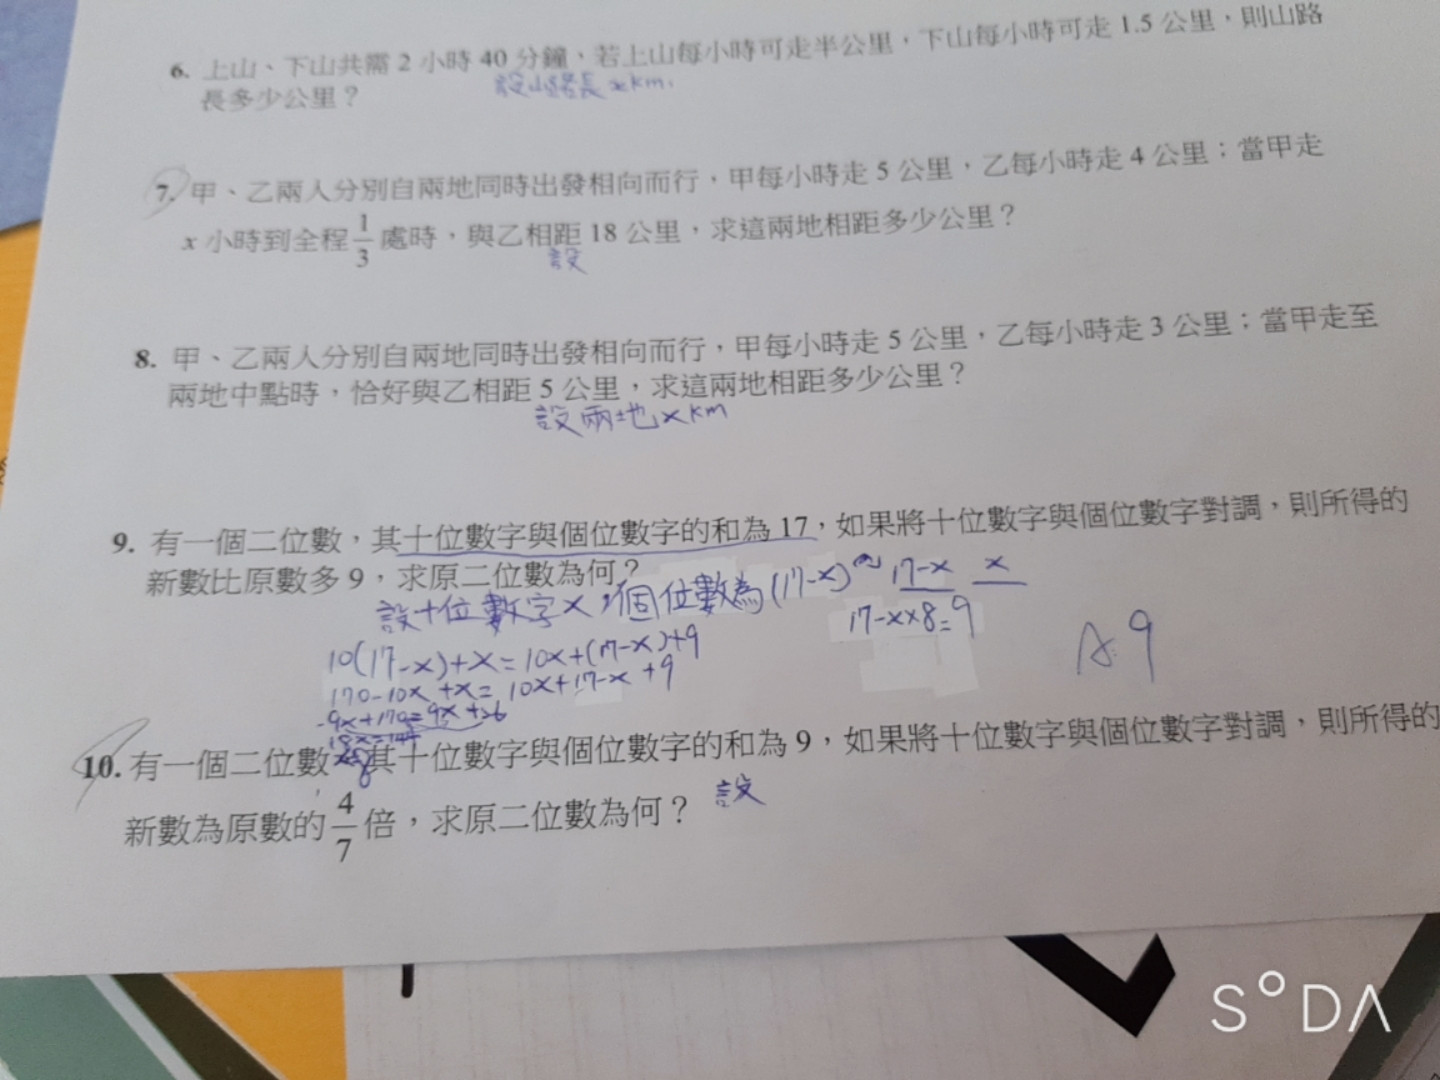 6. 上山、下山共需 2 小時 40 分鐘，若上山每小時可走半公里，下山每小時可走 1.5 公里，則山路
長多少公里？
設山路長 xkm.
7. 甲、乙兩人分別自兩地同時出發相向而行，甲每小時走 5 公里，乙每小時走 4 公里；當甲走
x 小時到全程 1/3 處時，與乙相距 18 公里，求這兩地相距多少公里？
設
8. 甲、乙兩人分別自兩地同時出發相向而行，甲每小時走 5 公里，乙每小時走 3 公里；當甲走至
兩地中點時，恰好與乙相距 5 公里，求這兩地相距多少公里？
設兩地 x km
9. 有一個二位數，其十位數字與個位數字的和為 17，如果將十位數字與個位數字對調，則所得的
新數比原數多 9，求原二位數為何？
設十位數字 x，個位數為 (17-x) 17-x x
17-x×8=9
10(17-x)+x=10x+(17-x)+9
170-10x+x=10x+17-x+9
-9x+170=9x+26
18x=144
A:9
10. 有一個二位數，其十位數字與個位數字的和為 9，如果將十位數字與個位數字對調，則所得的
新數為原數的 4/7 倍，求原二位數為何？
設
S°DA